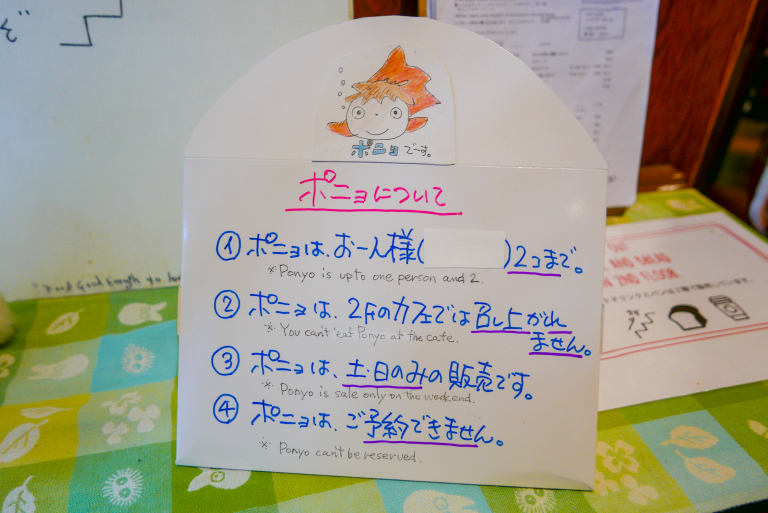 ポニョでーす。
ポニョについて
① ポニョは、お一人様( )2コまで。
※ Ponyo is up to one person and 2.
② ポニョは、2Fのカフェでは召し上がれ
ません。
※ You can't eat Ponyo at the cafe.
③ ポニョは、土・日のみの販売です。
※ Ponyo is sale only on the weekend.
④ ポニョは、ご予約できません。
※ Ponyo can't be reserved.
AND SALAD
2ND FLOOR